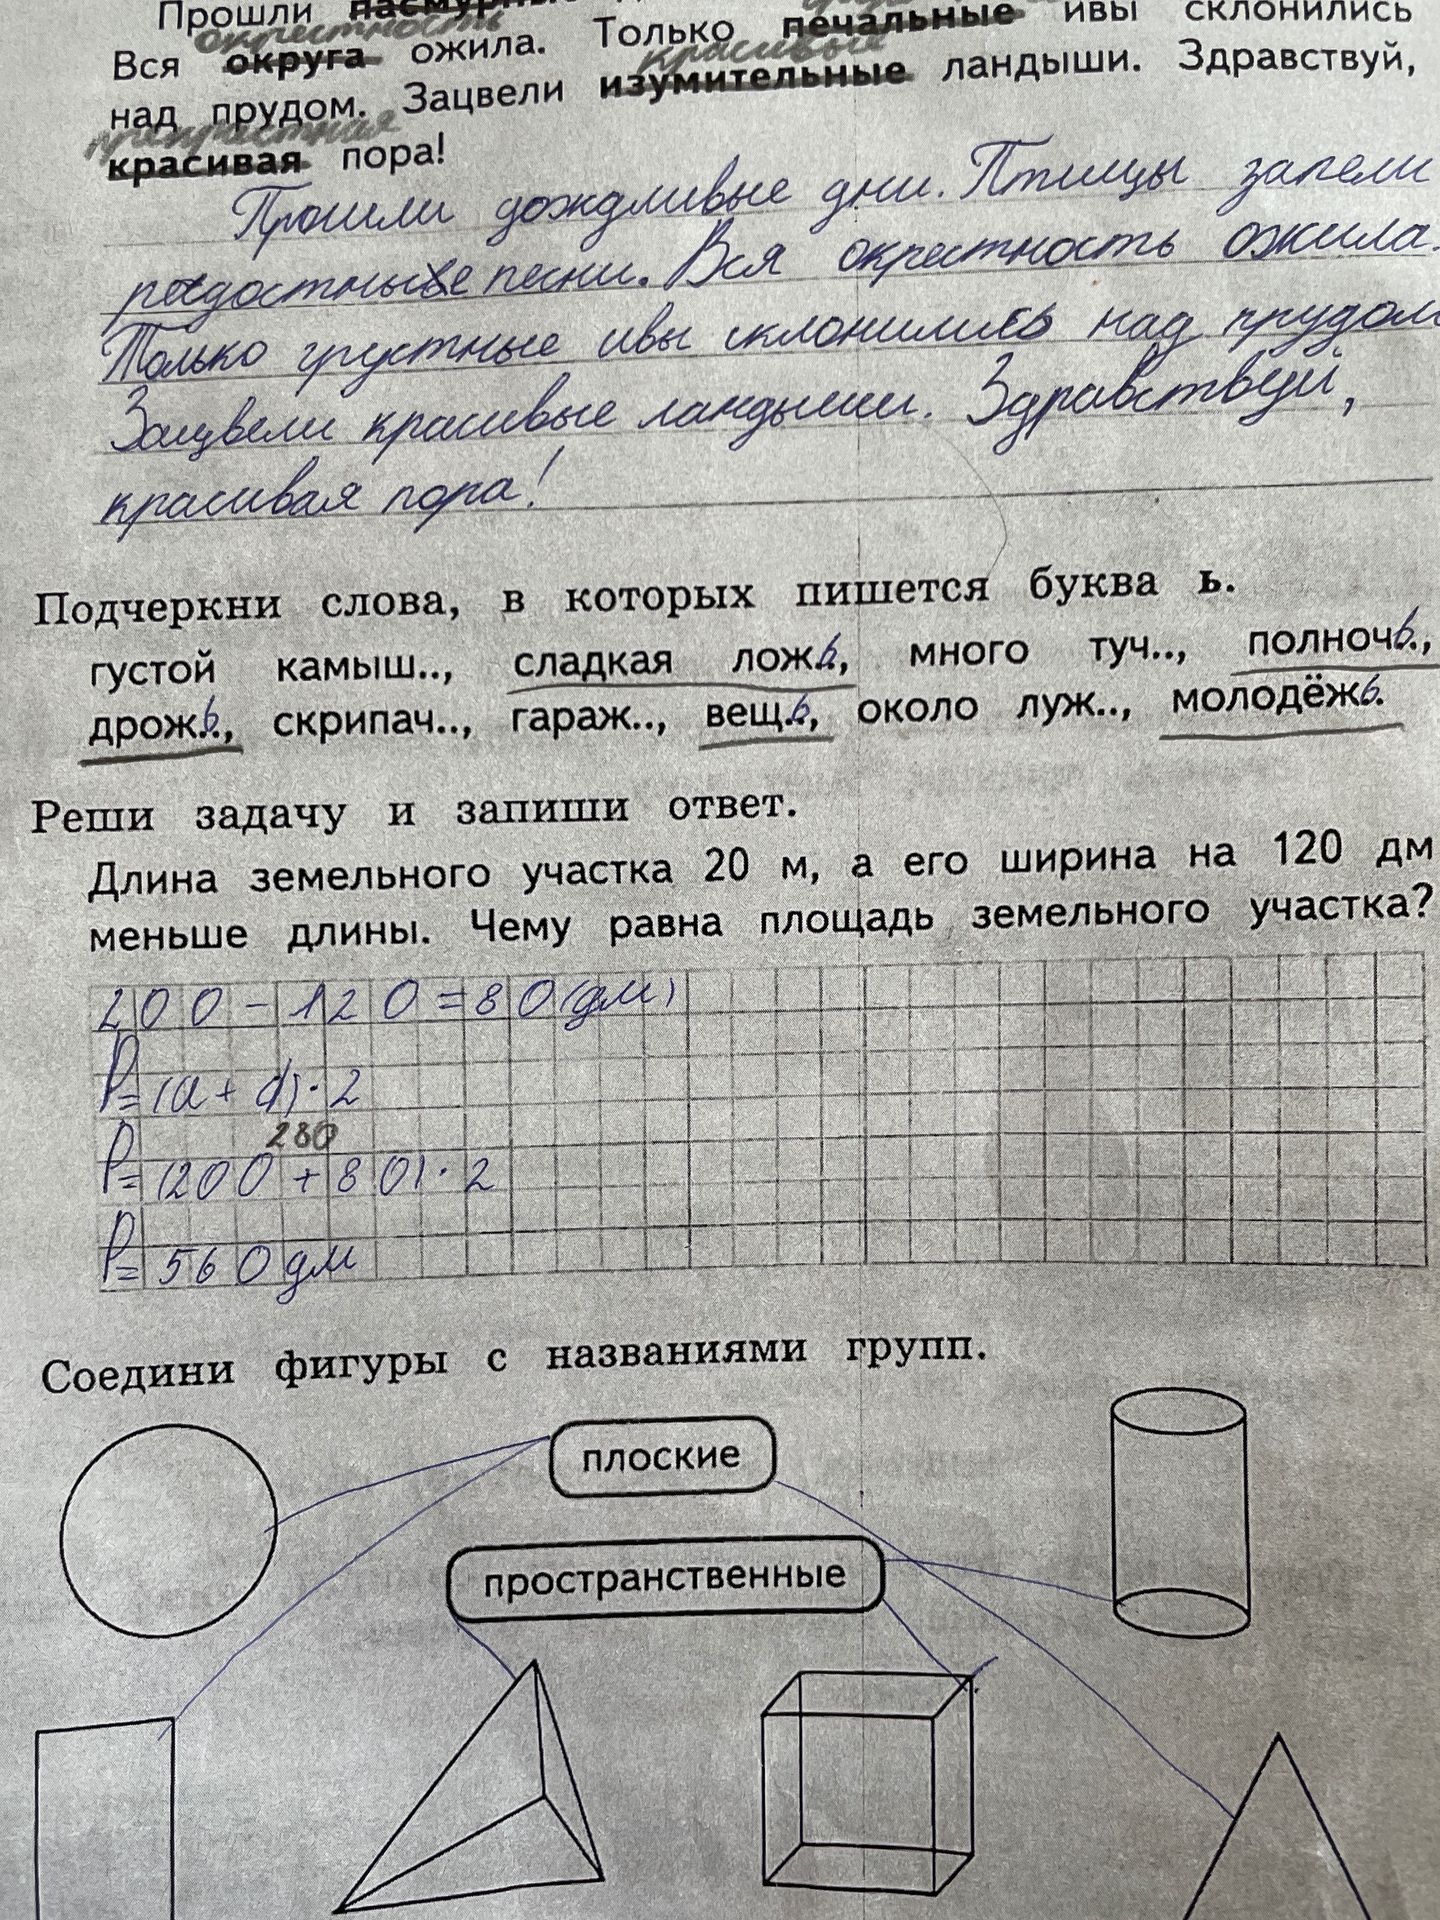 Прошли пасмурные
окрестность
Вся округа ожила. Только печальные ивы склонились
красивые
над прудом. Зацвели изумительные ландыши. Здравствуй,
прекрасная
красивая пора!
Прошли дождливые дни. Птицы запели
радостные песни. Вся окрестность ожила.
Только грустные ивы склонились над прудом
Зацвели красивые ландыши. Здравствуй,
красивая пора!
Подчеркни слова, в которых пишется буква ь.
густой камыш.., сладкая ложь, много туч.., полночь.,
дрожь., скрипач.., гараж.., вещь., около луж.., молодёжь.
Реши задачу и запиши ответ.
Длина земельного участка 20 м, а его ширина на 120 дм
меньше длины. Чему равна площадь земельного участка?
200-120=80(дм)
P=(a+d)·2
280
P=(200+80)·2
P=560дм
Соедини фигуры с названиями групп.
плоские
пространственные